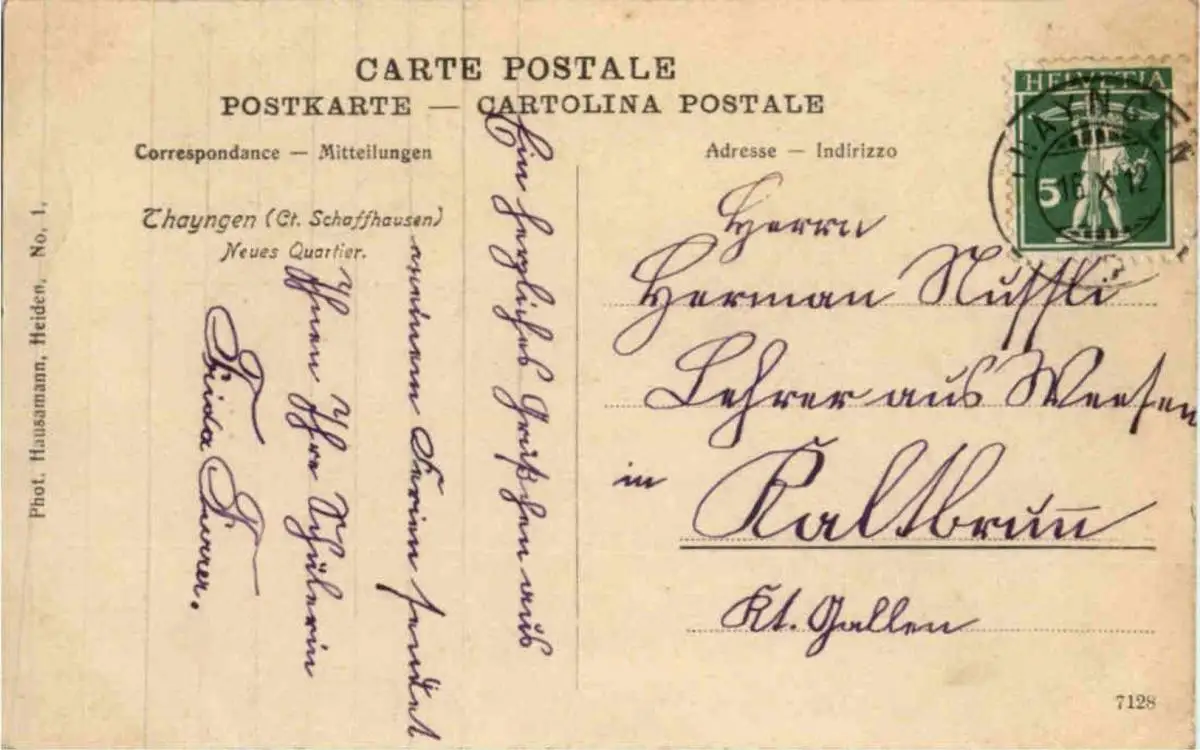 CARTE POSTALE
POSTKARTE — CARTOLINA POSTALE
Correspondance — Mitteilungen
Adresse — Indirizzo
Thayngen (Ct. Schaffhausen)
Neues Quartier.
Phot. Hausamann, Heiden, No. 1.
Ein herzliches Grüßchen aus
meinem Ferien sendet
Ihnen Ihre Schülerin
Frida Furrer.
HELVETIA
5
THAYNGEN
16.X.12
Herrn
Herman Nüssli
Lehrer aus Weesen
in Kaltbrunn
Kt. Gallen
7128